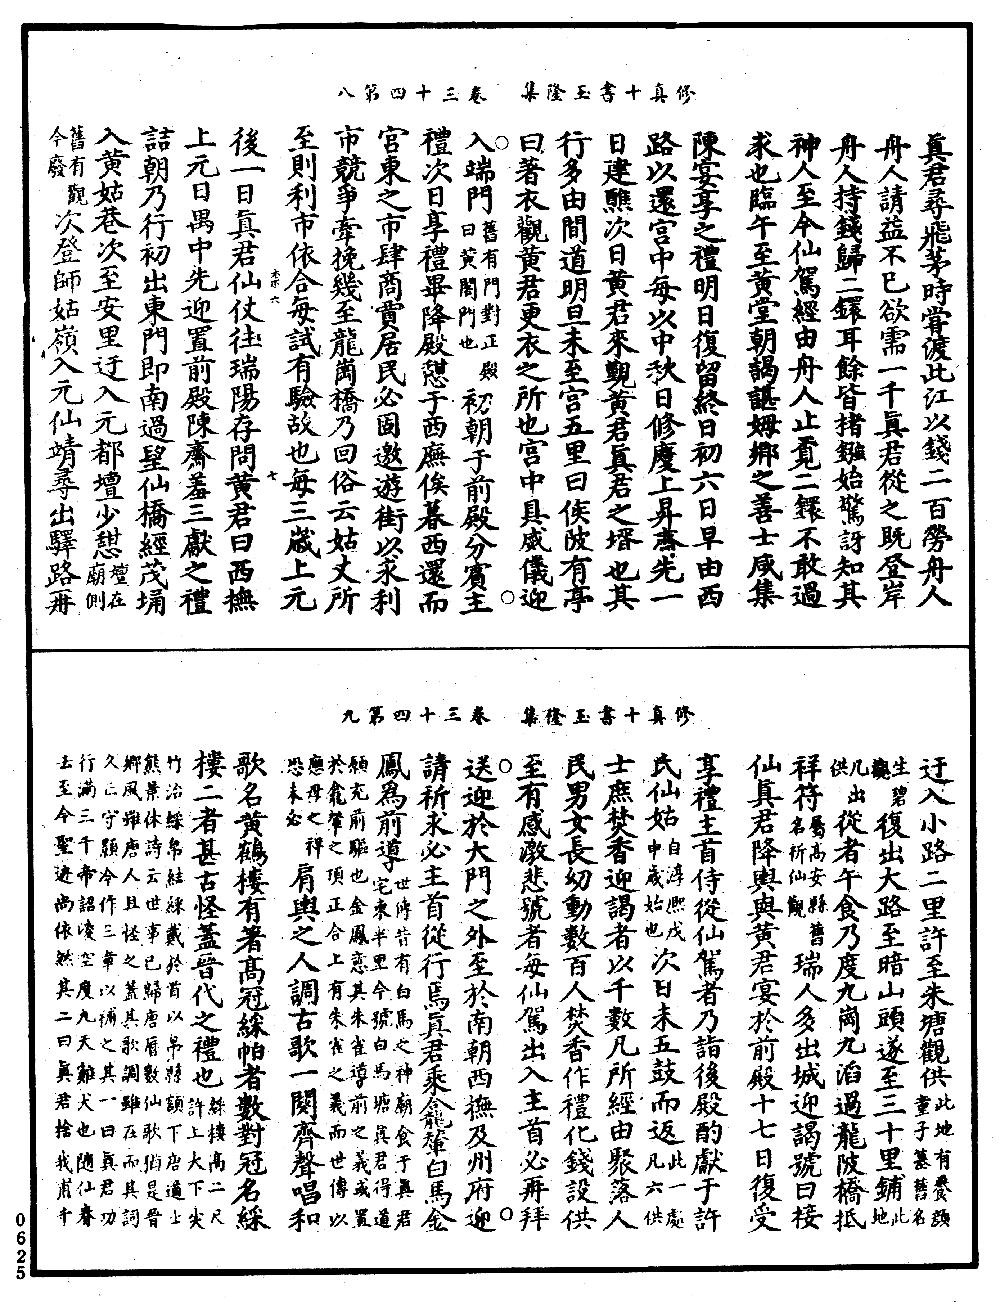 修真十書玉隆集　卷三十四第八
真君尋飛茅時嘗渡此江以錢二百勞舟人
舟人請益不已欲需一千真君從之既登岸
舟人持錢歸二鐶耳餘皆楮鏹始驚訝知其
神人至今仙駕經由舟人止覓二鐶不敢過
求也臨午至黃堂朝謁諶姆鄉之善士咸集
陳宴享之禮明日復留終日初六日早由西
路以還宮中每以中秋日修慶上昇齋先一
日建醮次日黃君來覲黃君真君之壻也其
行多由間道明旦未至宮五里曰侯陂有亭
曰著衣觀黃君更衣之所也宮中具威儀迎
入端門舊有門對正殿曰黃閣門也初朝于前殿分賓主
禮次日享禮畢降殿憩于西廡俟暮西還而
宮東之市肆商賈居民必固邀遊街以求利
市競爭牽挽幾至龍崗橋乃回俗云姑丈所
至則利市依合每試有驗故也每三歲上元
後一日真君仙仗往瑞陽存問黃君曰西撫
上元日禺中先迎置前殿陳齋羞三獻之禮
詰朝乃行初出東門即南過望仙橋經茂埇
入黃姑巷次至安里迂入元都壇少憩壇在廟側
舊有觀今廢次登師姑嶺入元仙靖尋出驛路再
修真十書玉隆集　卷三十四第九
迂入小路二里許至朱塘觀供此地有養頭童子墓舊名
生碧觀復出大路至暗山頭遂至三十里鋪此地
凡出供從者午食乃度九崗九滔過龍陂橋抵
祥符觀屬高安縣舊名祈仙觀瑞人多出城迎謁號曰接
仙真君降輿與黃君宴於前殿十七日復受
享禮主首侍從仙駕者乃詣後殿酌獻于許
氏仙姑自淳熙戊申歲始也次日未五鼓而返凡六供此一處
士庶焚香迎謁者以千數凡所經由聚落人
民男女長幼動數百人焚香作禮化錢設供
至有感激悲號者每仙駕出入主首必再拜
送迎於大門之外至於南朝西撫及州府迎
請祈求必主首從行焉真君乘龕輦白馬金
鳳為前導世傳昔有白馬之神廟食于真君宅東半里今號白馬塘真君得道
願充前驅也金鳳恋其朱雀導前之義或置於龕輦之項正合上有朱雀之義而世傳以
應母之祥恐未必肩輿之人調古歌一闋齊聲唱和
歌名黃鶴樓有著高冠綵帕者數對冠名綵
樓二者甚古怪蓋晉代之禮也綵樓高二尺許上大下尖
竹治綵帛結綵戴於首以帛縣額下唐道士熊景休詩云世事已歸唐曆數仙歌猶是晉
鄉風雖唐人且怪之蓋其歌調雖在而其詞久亡守顥今作三章以補之其一曰真君功
行滿三千帝詔凌空度九天雞犬也隨仙眷去至今聖迹尚依然其二曰真君捨我甫千
0625